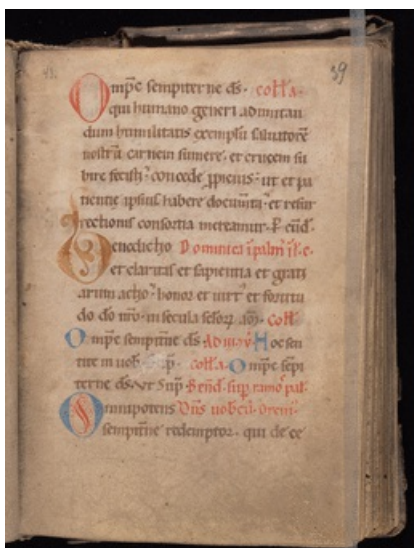 43.
39
Omp̄c sempiterne d̄s. coll̄a.
qui humano generi ad imitan
dum humilitatis exemplū saluatorē
nostrū carnem sumere. et crucem su
bire fecisti. concede ꝓpicius. ut et pa
tientie ipsius habere documīta. et resur
rectionis consortia mereamur. P̄ eūd.
Benedictio Dominica ī palm̄
et claritas et sapientia et grati
arum actio. honor et uirt᷒ et fortitu
do do n̄ro. in secula seculoꝝ am̄. Coll̄
Omp̄c sempit̄ne d̄s Ad Hoc sen
tite in uob coll̄a. Omp̄c sēpi
terne d̄s. Vt sup̄ Bēnd. sup̄ ramo᷒ pal.
Omnipotens D̄ns uobcū. Oremꝰ.
sempit̄ne redemptor. qui de ce